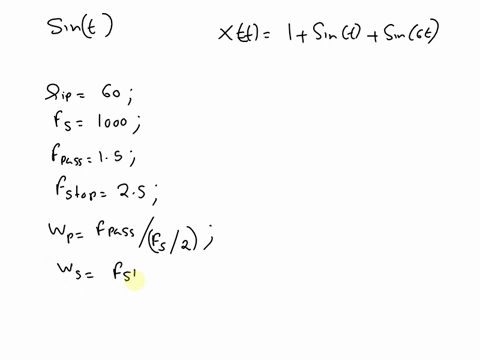 Sin(t)
X(t) = 1 + Sin(t) + Sin(6t)
Rip = 60 ;
Fs = 1000 ;
Fpass = 1.5 ;
Fstop = 2.5 ;
Wp = Fpass/(Fs/2) ;
Ws = Fst